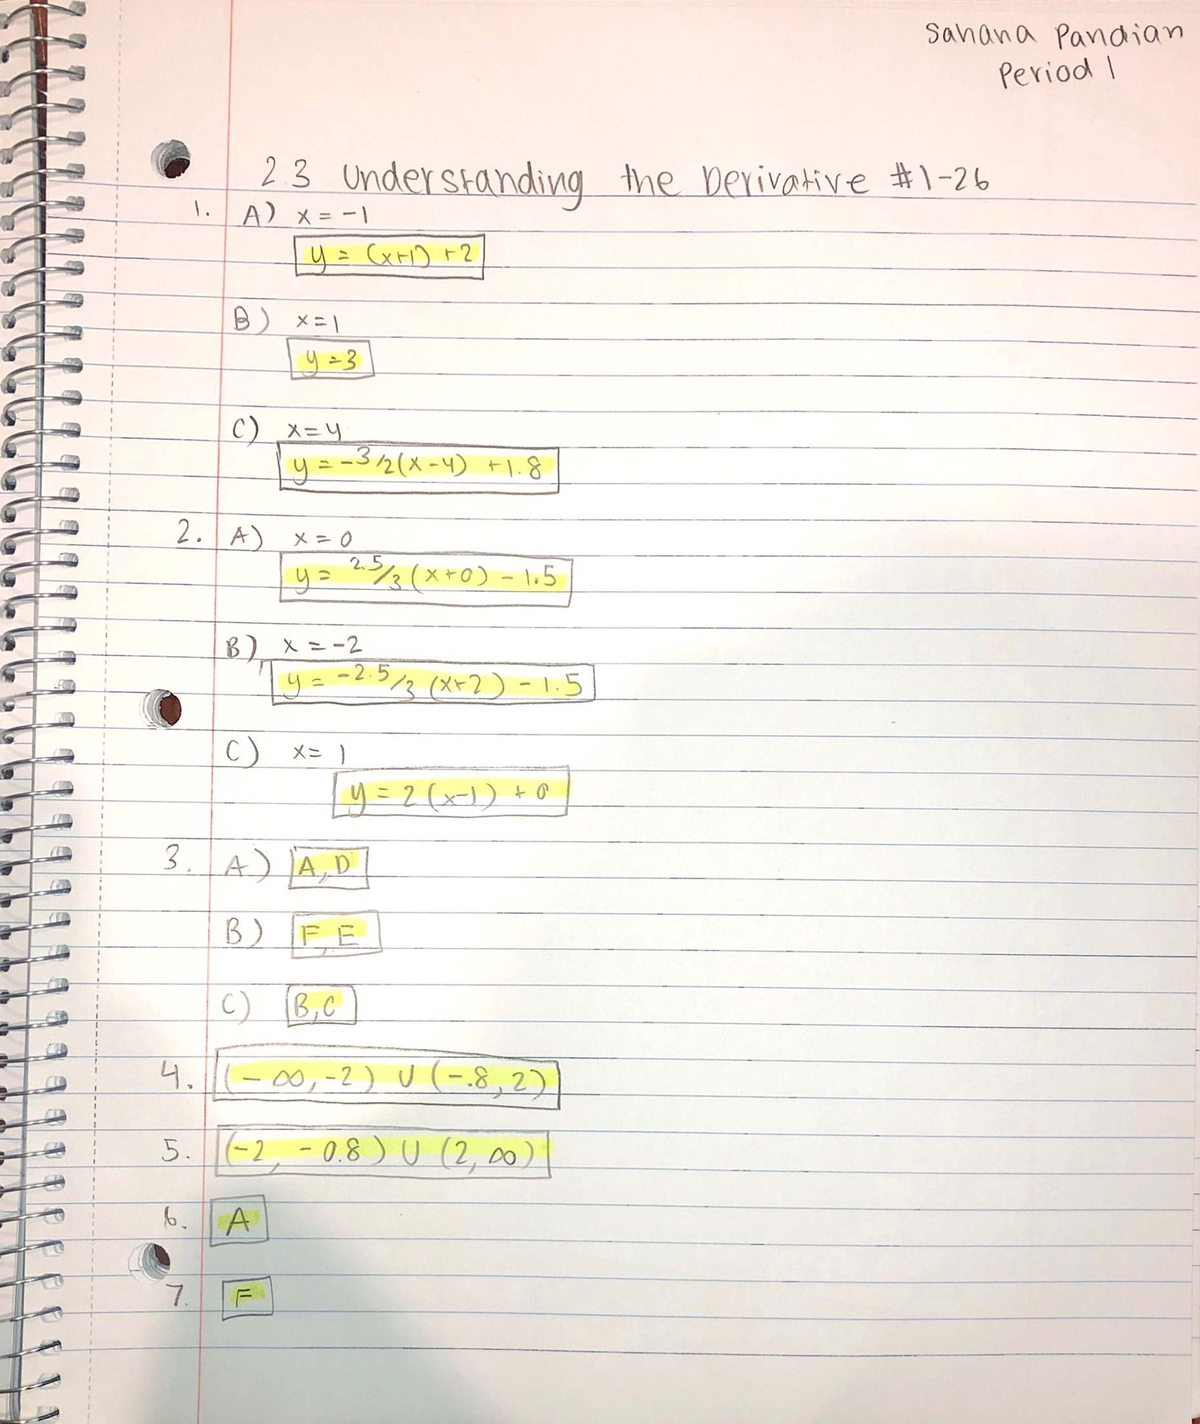 Sahana Pandian
Period 1
2.3 Understanding the Derivative #1-26
1. A) x = -1
y = (x+1) + 2
B) x=1
y=3
C) x=4
y = -3/2(x-4) +1.8
2. A) x = 0
y = 2.5/3 (x+0) - 1.5
B) x = -2
y = -2.5/3 (x+2) - 1.5
C) x= 1
y = 2(x-1) + 0
3. A) A, D
B) F, E
C) B,C
4. (-∞,-2) ∪ (-.8, 2)
5. (-2, -0.8) ∪ (2, ∞)
6. A
7. F